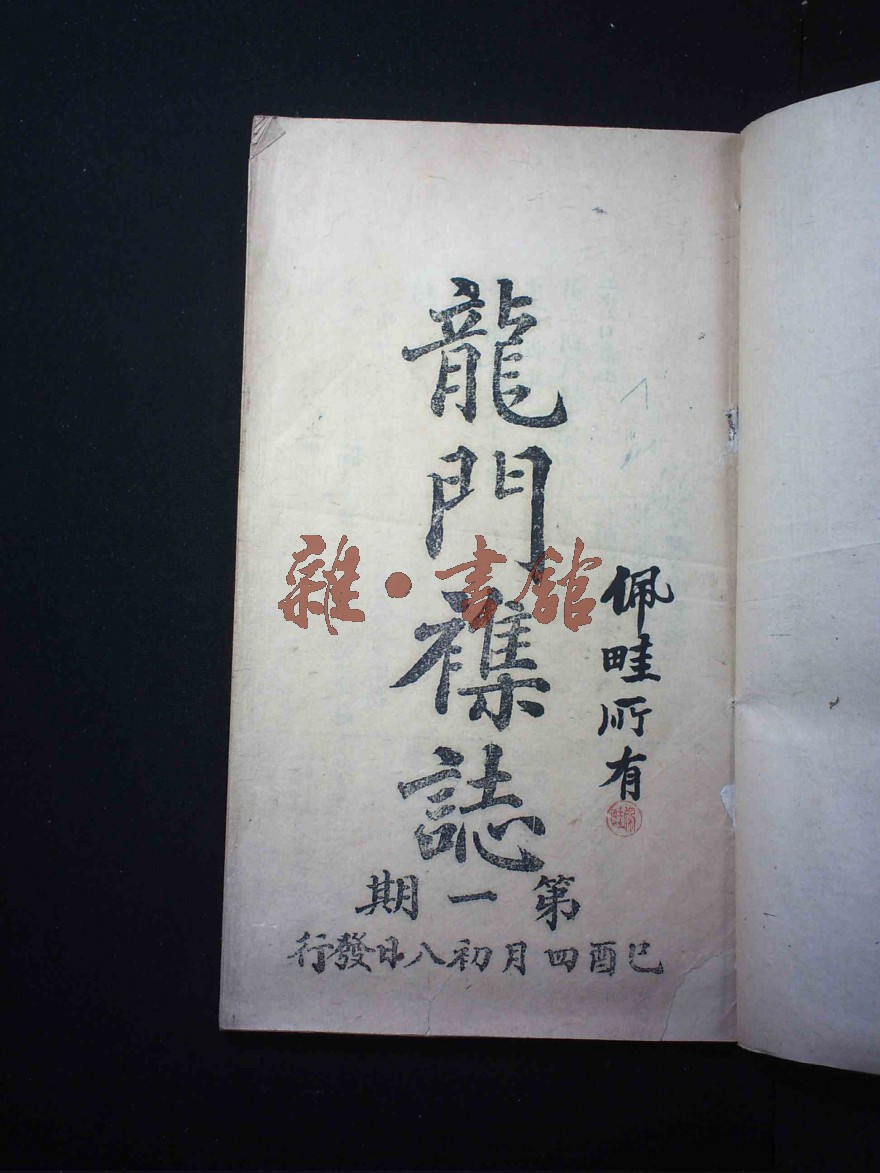 龍門襍誌
第一期
己酉四月初八日發行
佩畦所有
佩畦
雜·書館